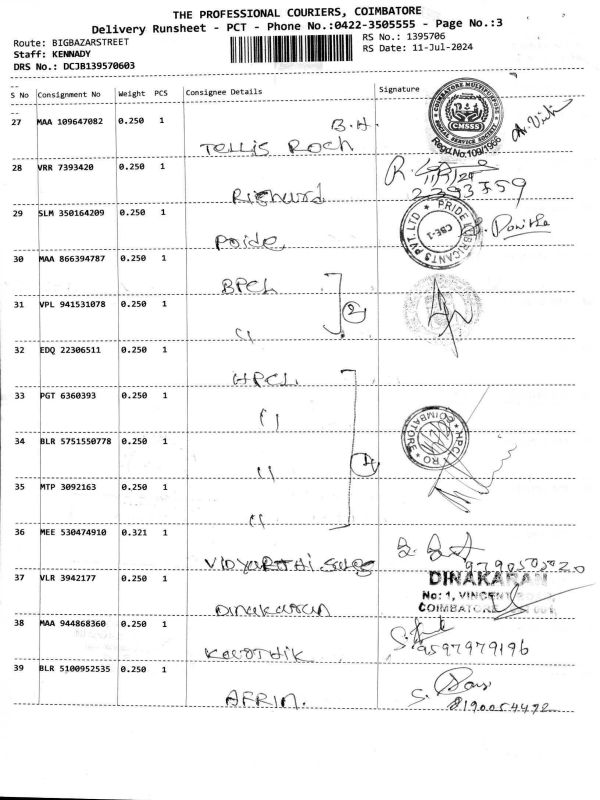 THE PROFESSIONAL COURIERS, COIMBATORE
Delivery Runsheet - PCT - Phone No.:0422-3505555 - Page No.:3
Route: BIGBAZARSTREET
RS No.: 1395706
Staff: KENNADY
RS Date: 11-Jul-2024
DRS No.: DCJB139570603
S No Consignment No Weight PCS Consignee Details Signature
27 MAA 109647082 0.250 1 B.H.
Tellis Roch
COIMBATORE MULTIPURPOSE SOCIAL SERVICE SOCIETY
CMSSS
Regd.No.109/1966
28 VRR 7393420 0.250 1
Richard
29 SLM 350164209 0.250 1
Pride
PRIDE LUBRICANTS PVT. LTD
CBE-1
30 MAA 866394787 0.250 1
BPCL
31 VPL 941531078 0.250 1 2
"
32 EDQ 22306511 0.250 1
HPCL
33 PGT 6360393 0.250 1
"
34 BLR 5751550778 0.250 1
"
HPCL RO COIMBATORE
35 MTP 3092163 0.250 1
"
36 MEE 530474910 0.321 1
Vidyarthi Sales
9790505020
37 VLR 3942177 0.250 1
Dinakaran
DINAKARAN
No: 1, VINCENT
COIMBATORE
38 MAA 944868360 0.250 1
Kowthik
9597979196
39 BLR 5100952535 0.250 1
AFRIN.
8190054492